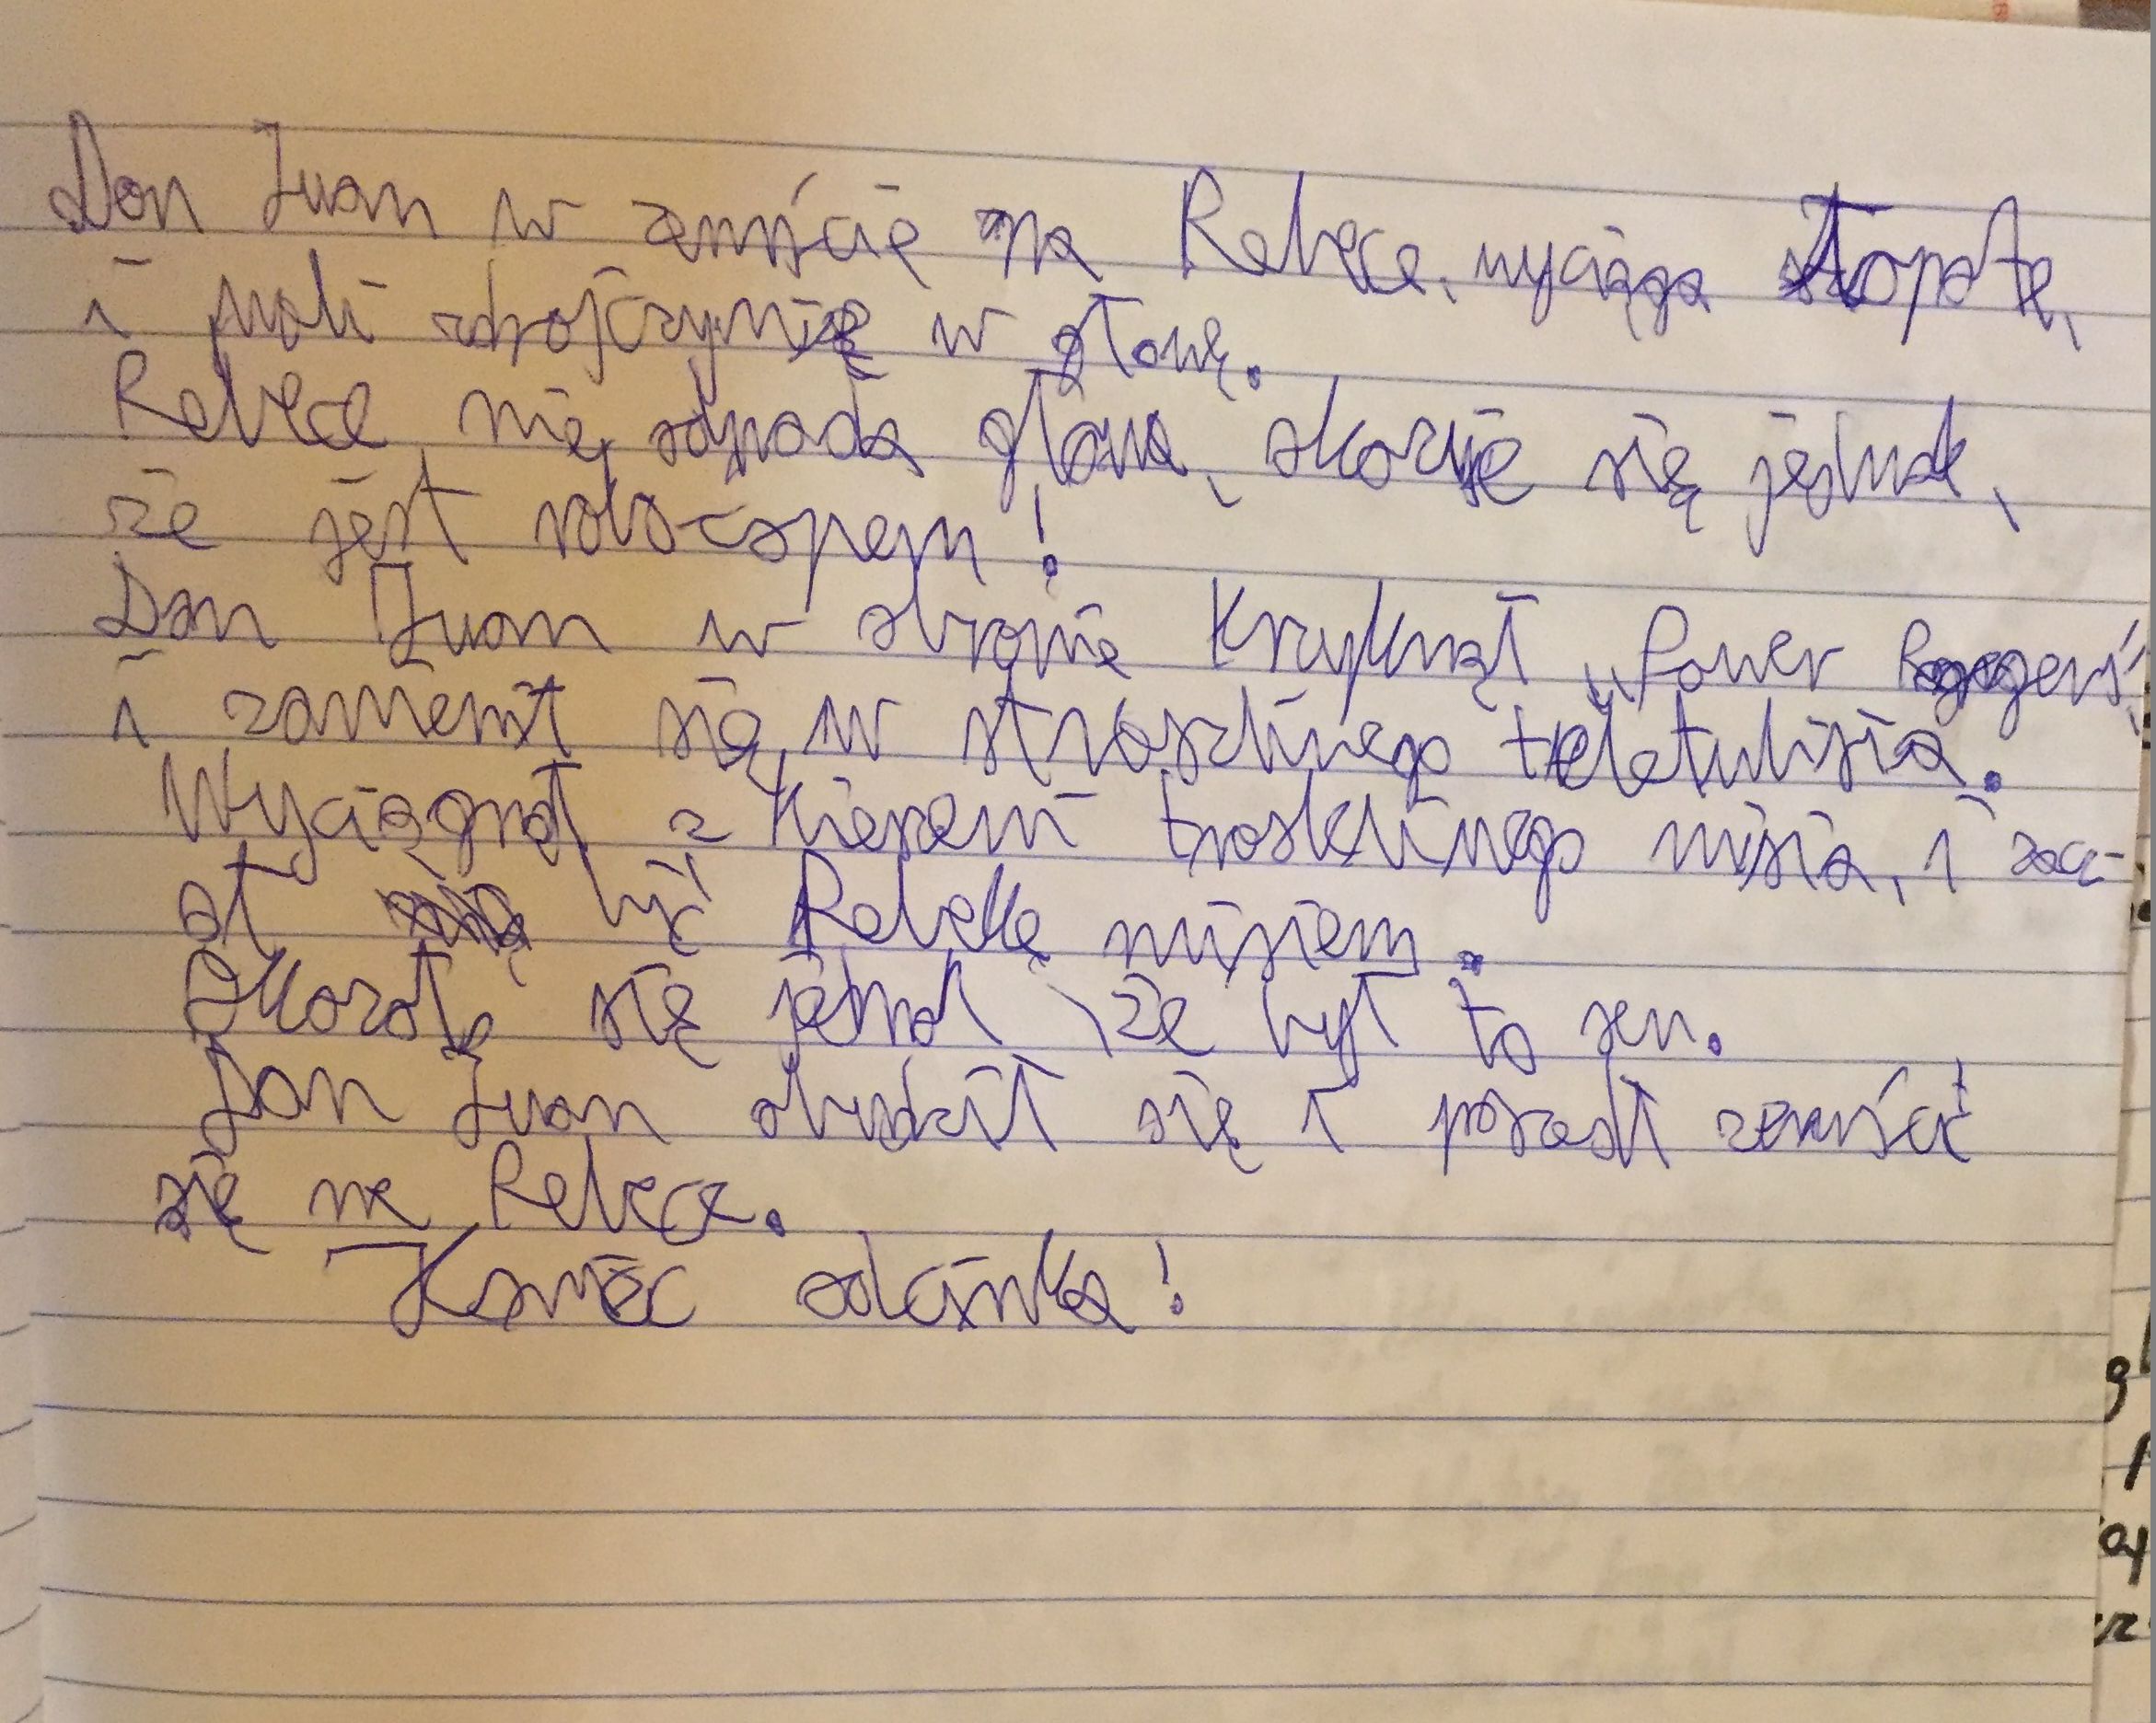 Don Juan w zemście na Rebece, wyciąga łopatę,
i wali zbrojczynię w głowę.
Rebece nie odpada głowa, okazuje się jednak,
że jest robocopem!
Don Juan w obronie krzyknął „Power Rangers”,
i zamienił się w straszliwego teletubisia.
Wyciągnął z kieszeni troskliwego misia, i zacz-
ął bić Rebekę misiem.
Okazało się jednak, że był to sen.
Don Juan obudził się i poszedł zemścić
się na Rebece.
Koniec odcinka!